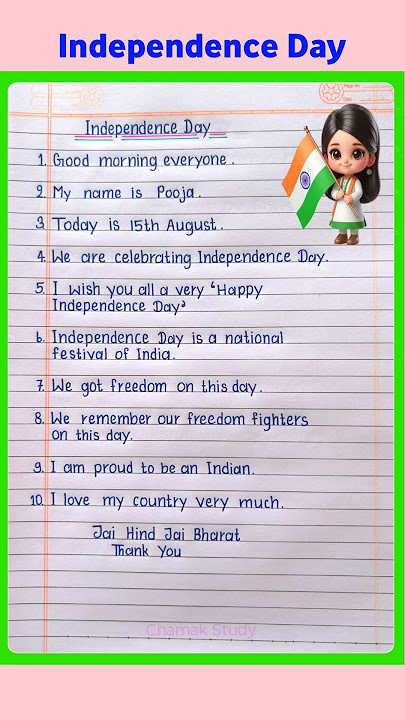 Independence Day
Page No.
Date
Independence Day
1. Good morning everyone.
2. My name is Pooja.
3. Today is 15th August.
4. We are celebrating Independence Day.
5. I wish you all a very 'Happy
Independence Day'
6. Independence Day is a national
festival of India.
7. We got freedom on this day.
8. We remember our freedom fighters
on this day.
9. I am proud to be an Indian.
10. I love my country very much.
Jai Hind Jai Bharat
Thank You
Chamak Study